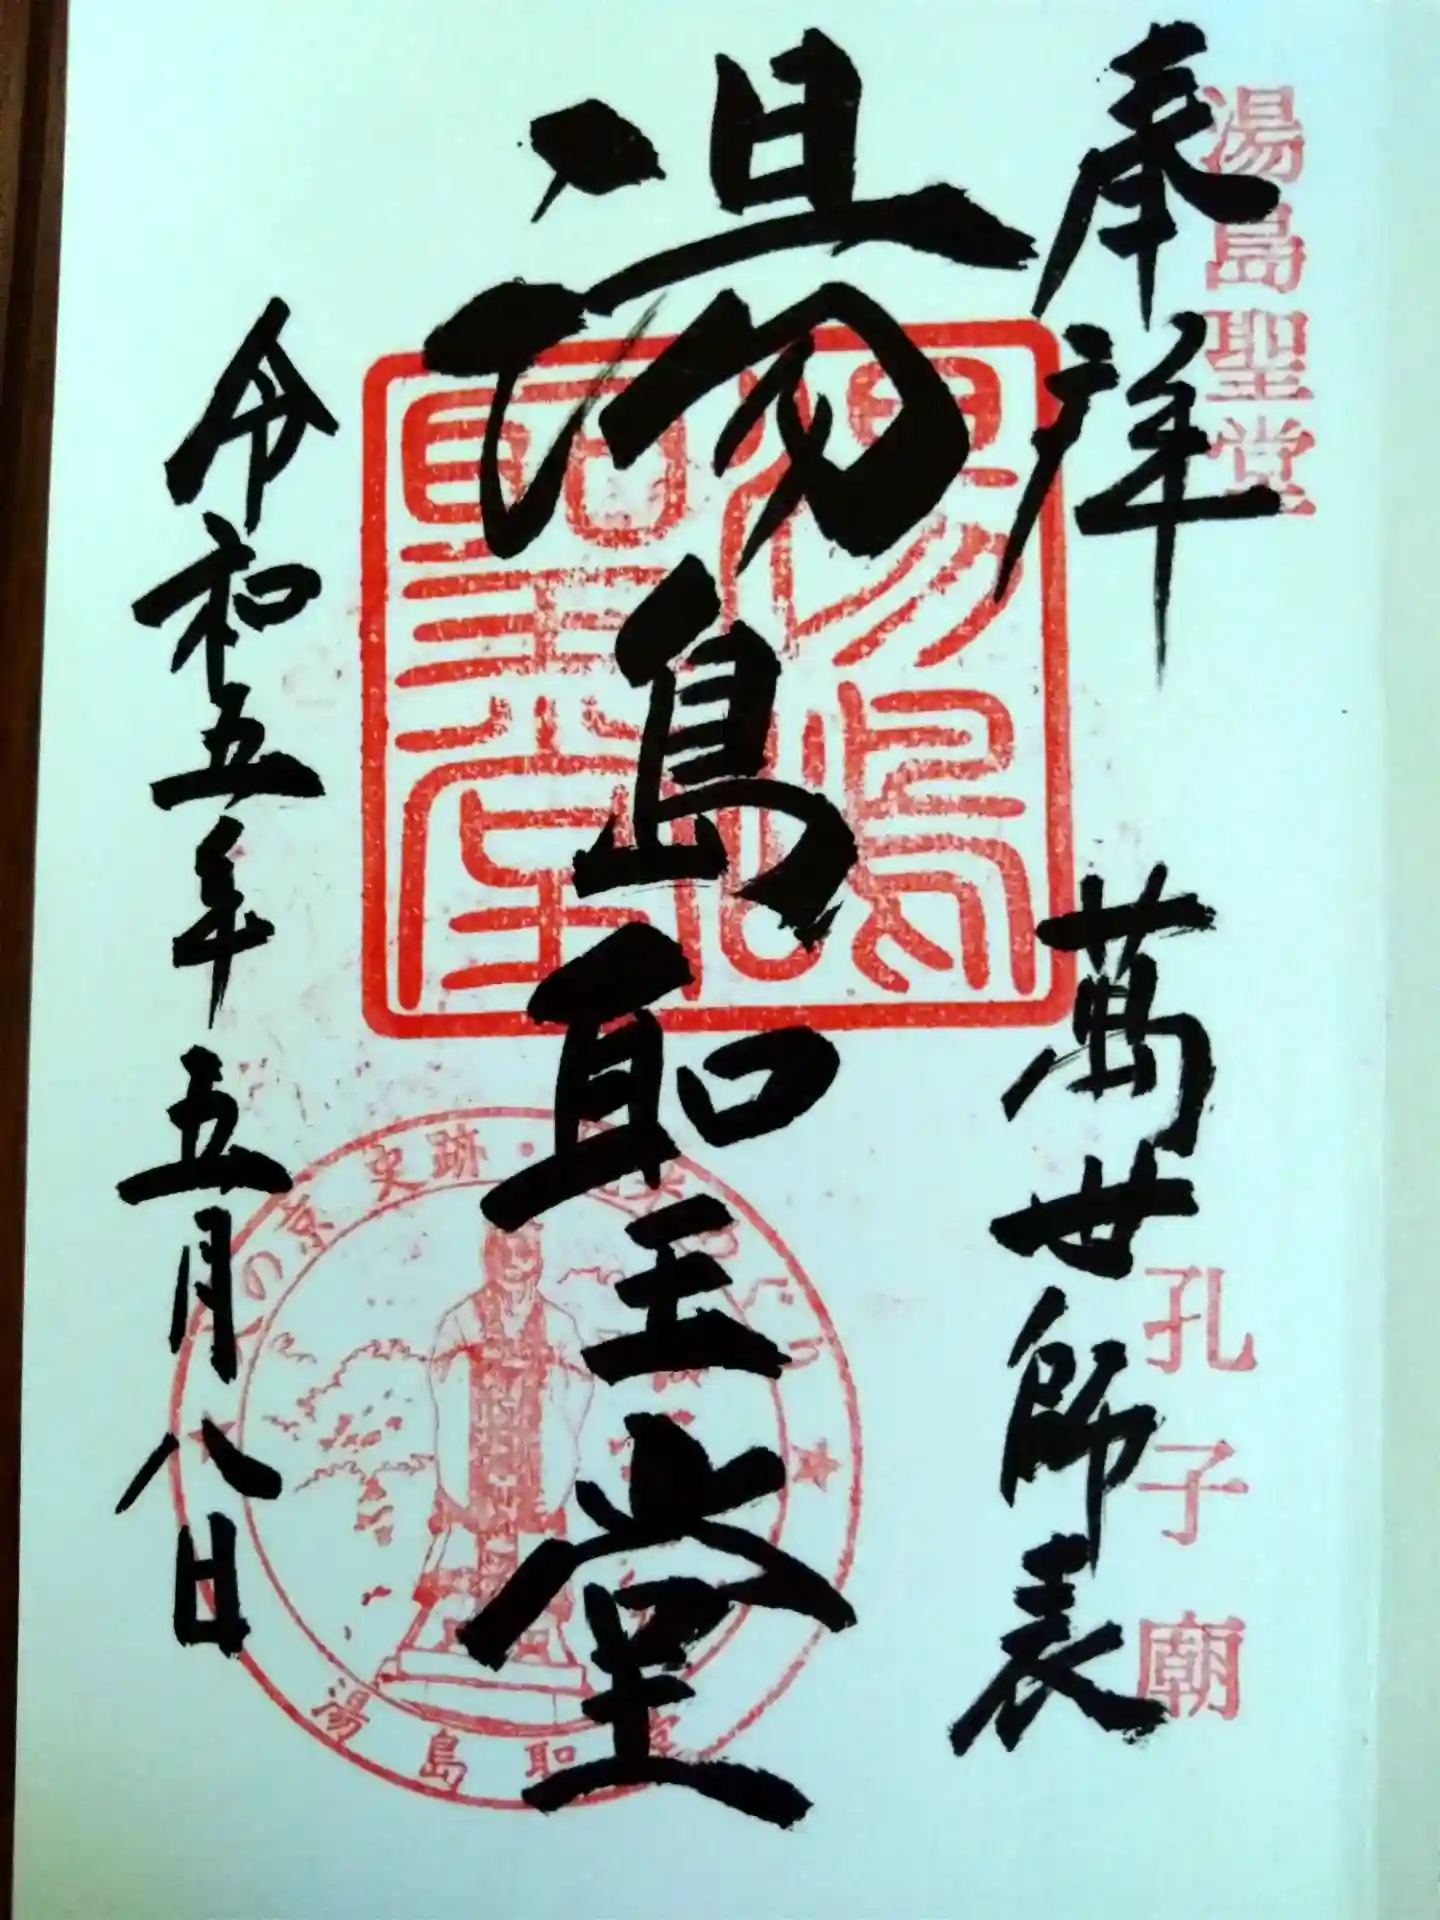 奉拝
湯島聖堂
萬世師表
孔子廟
湯島聖堂
湯島聖堂
令和五年五月八日
の京
史跡・
湯島聖堂